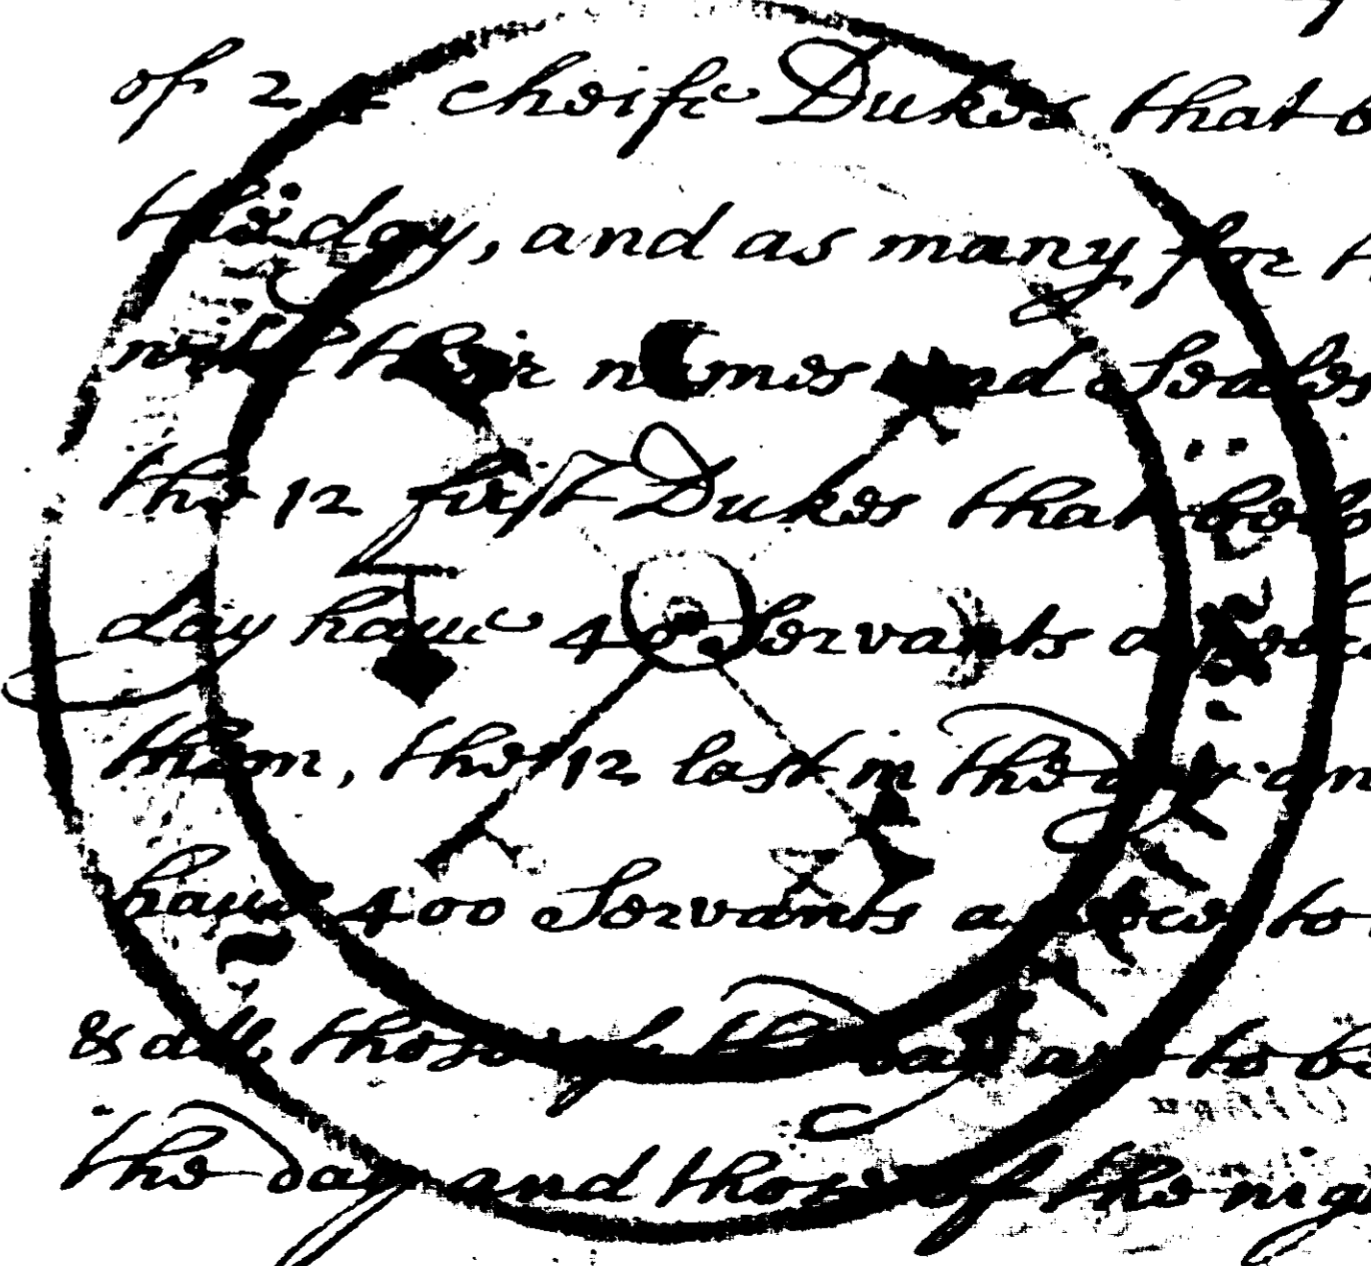 of 24 cheife Dukes that b
the day, and as many for t
with their names and Seales
the 12 first Dukes that belo
day haue 40 Servants a peece
them, the 12 last in the day an
haue 400 Servants a peece to
& all those of the day are to be
the day and those of the nig